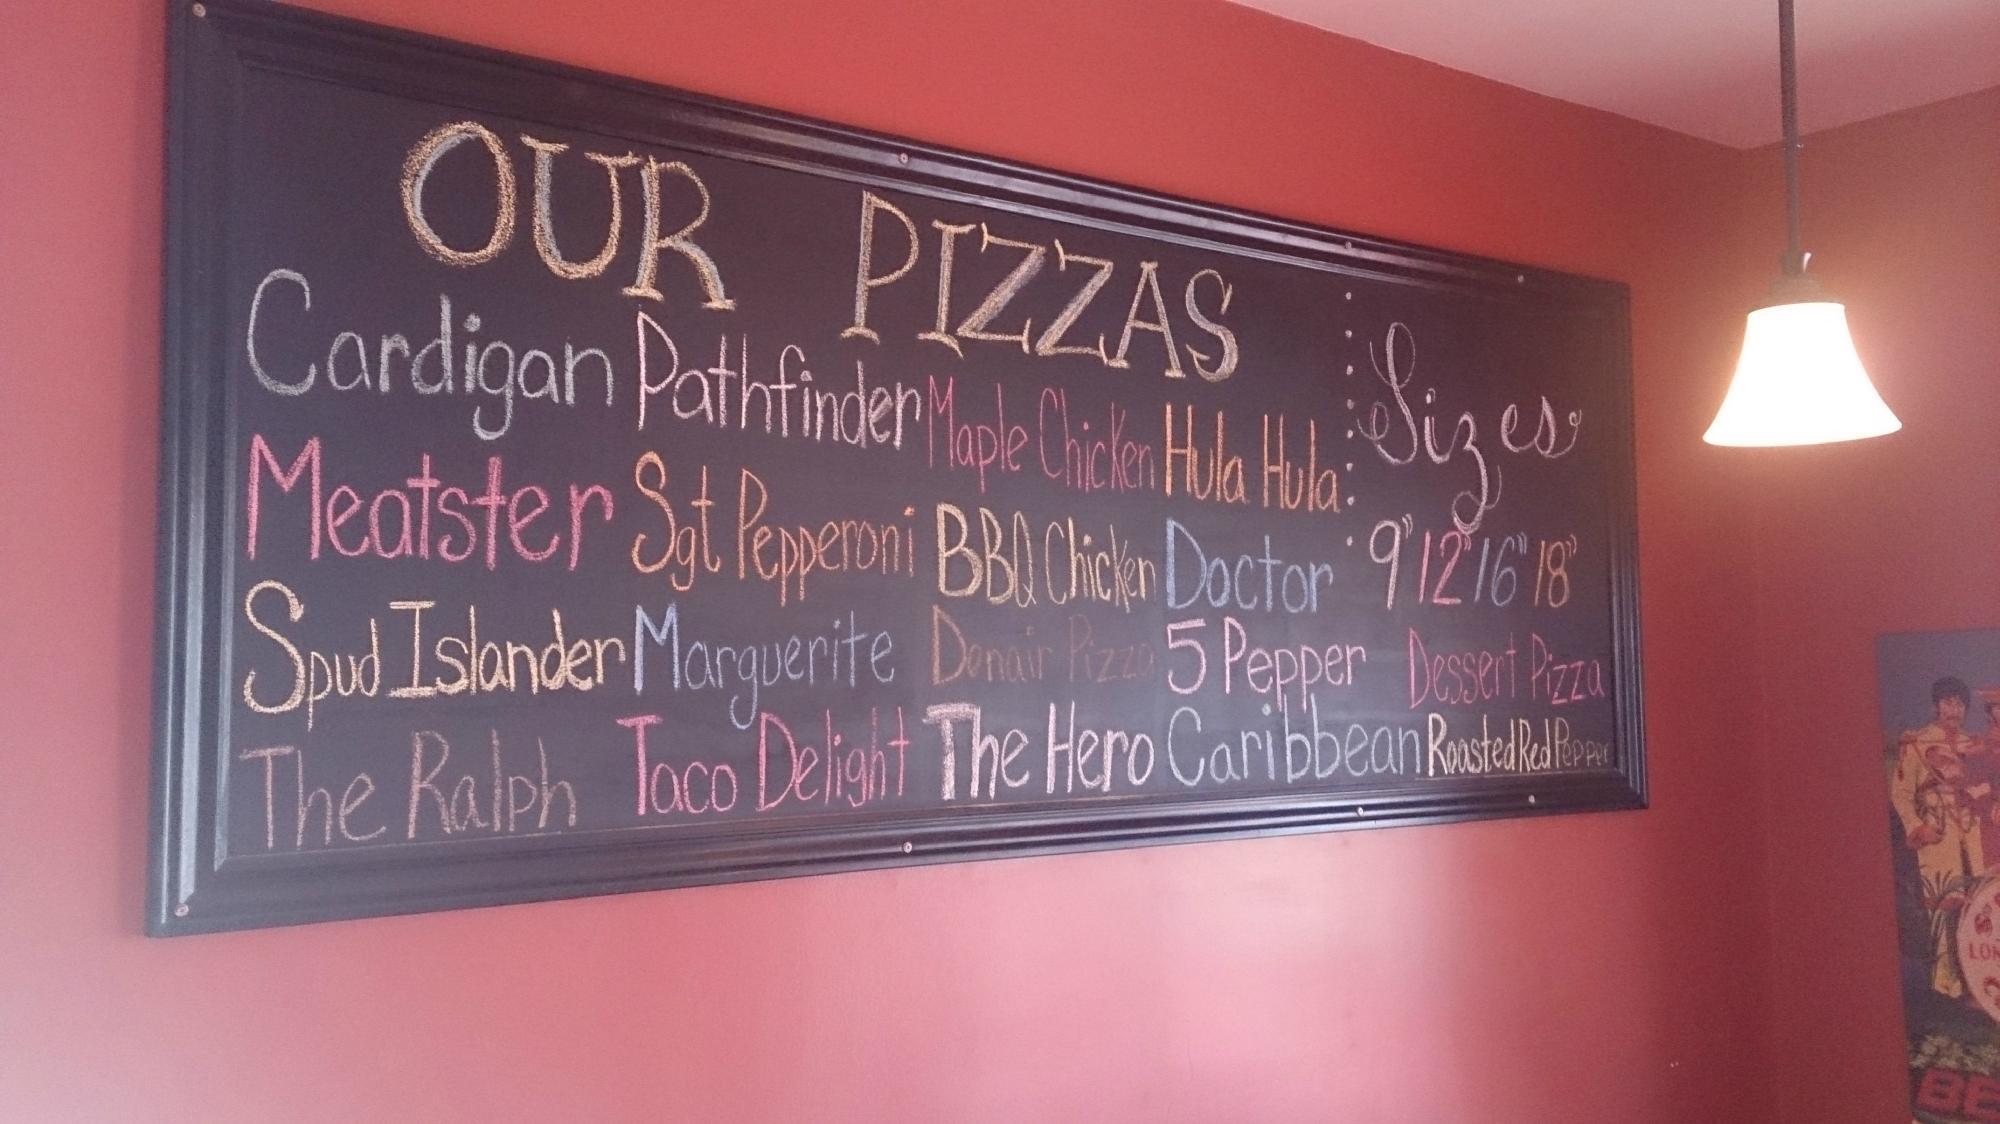 OUR PIZZAS
Cardigan Pathfinder Maple Chicken Hula Hula
Meatster Sgt Pepperoni BBQ Chicken Doctor
Spud Islander Marguerite Donair Pizza 5 Pepper Dessert Pizza
The Ralph Taco Delight The Hero Caribbean Roasted Red Pepper
Sizes
9" 12" 16" 18"